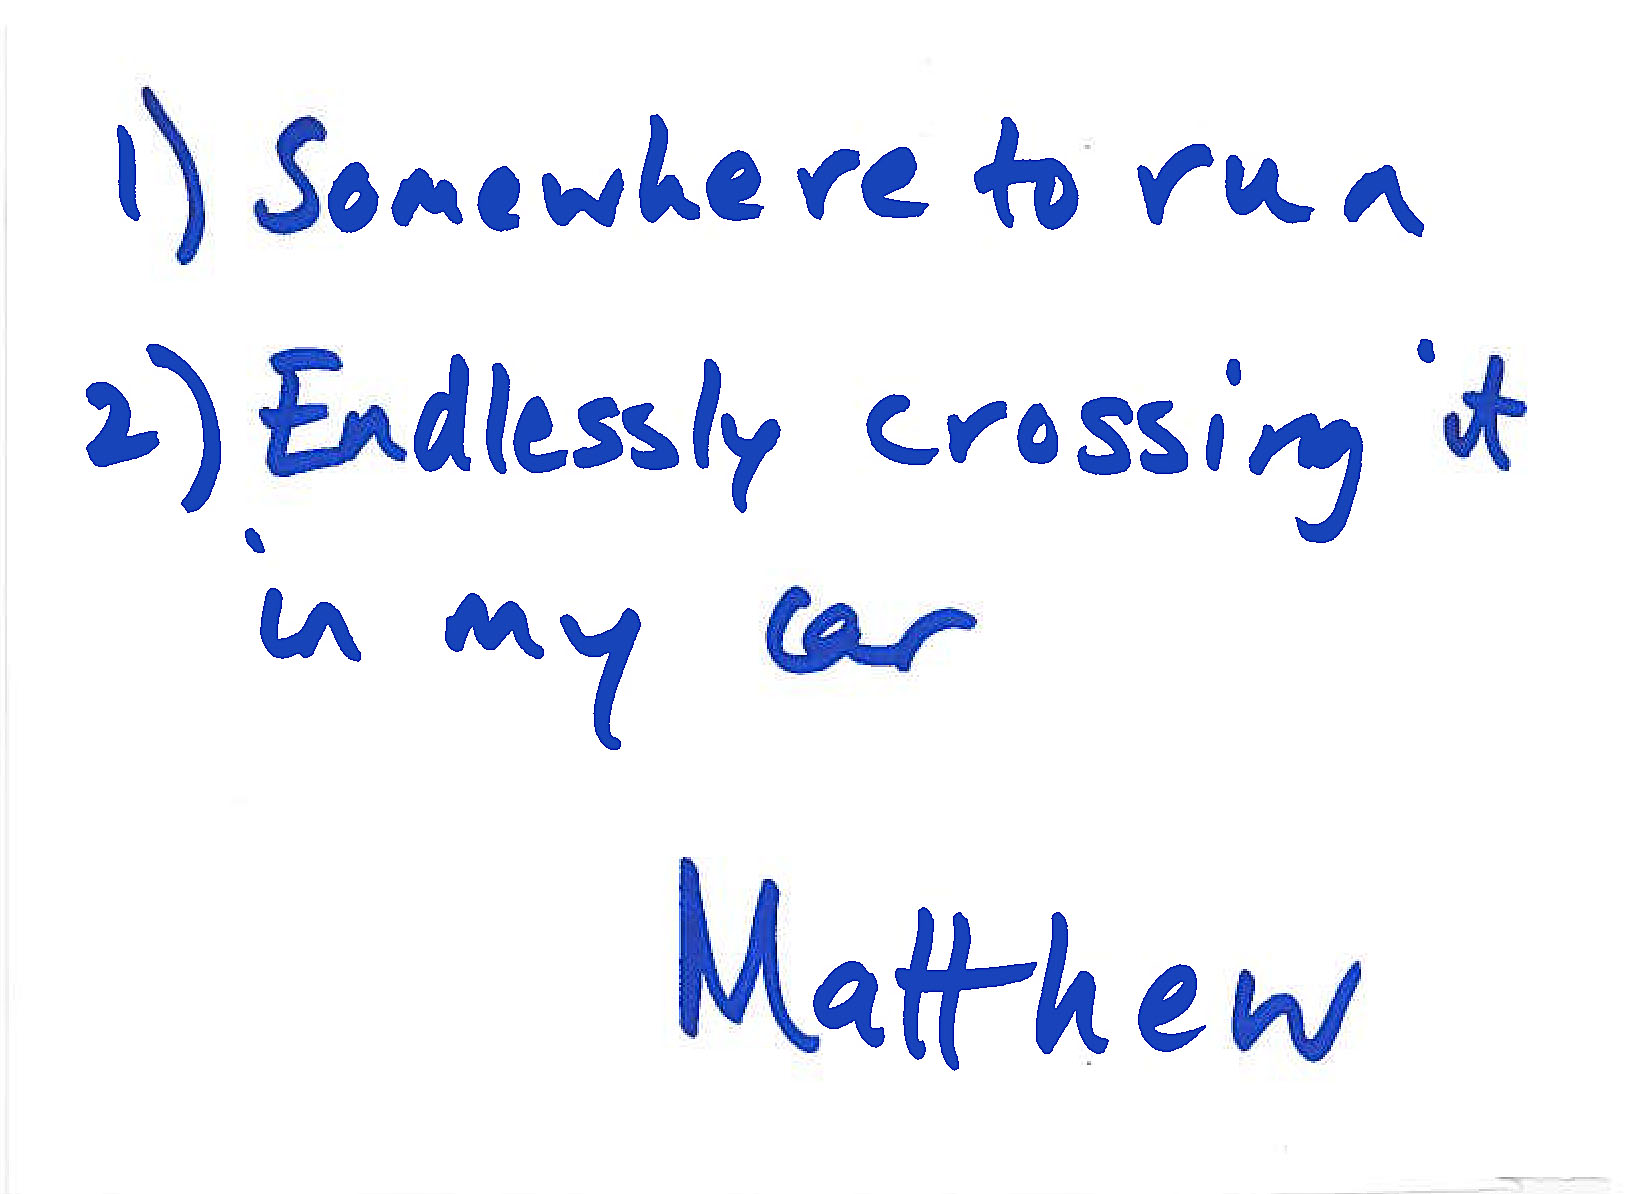 1) Somewhere to run
2) Endlessly crossing it
in my car
Matthew